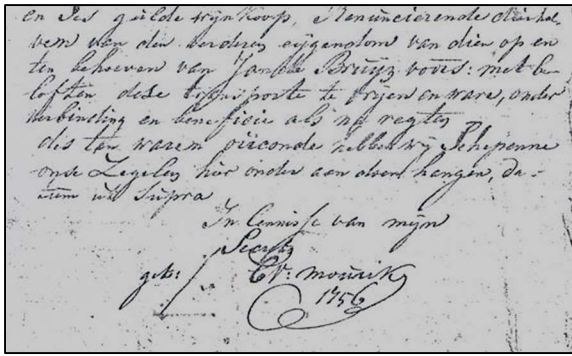 en ses gulde wijnkoop, Renuncierende
ven van den verderen eijgendom van dien op en
ten behoeven van Jan de Bruijz voors: met be-
loften dese transporte te vrijen en ware, onder
verbinding en beneficie als na regten
des ten waren oirconde hebben wij Schepenne
onse Zegelen hier onder aan doen hangen, da-
tum ut Supra
In Cennisse van mijn
Secrts
get: C V: mourik
1756